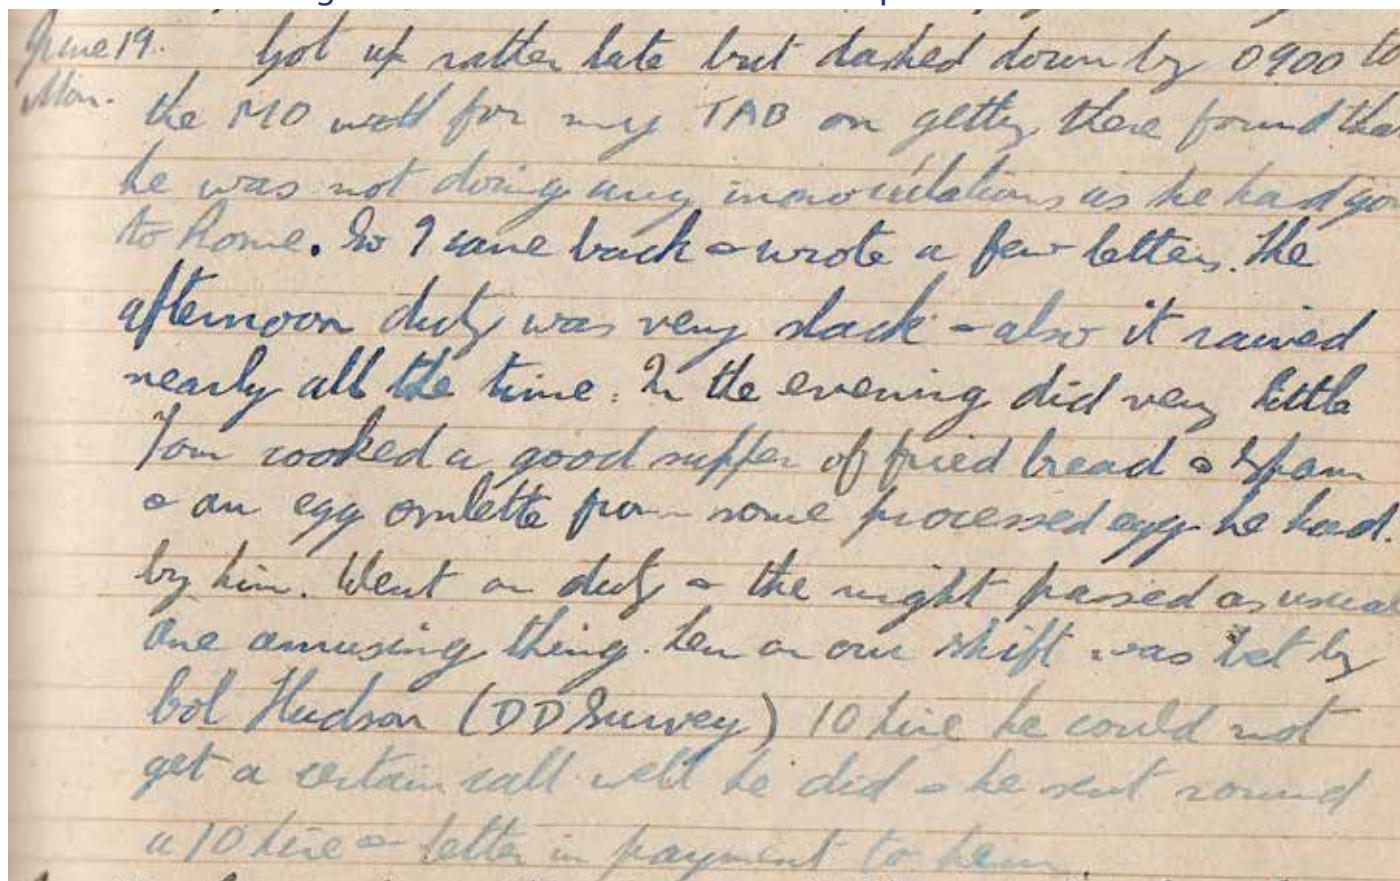 June 19. Got up rather late but dashed down by 0900 to
Mon. the MO well for my TAB on getting there found that
he was not doing any innoculations as he had go
to Rome. So I came back & wrote a few letters. The
afternoon duty was very slack - also it rained
nearly all the time. In the evening did very little
Tom cooked a good supper of fried bread & Spam
& an egg omlette from some processed egg he had.
by him. Went on duty & the night passed as usual
One amusing thing. Len on our shift was bet by
Col Hudson (DDSurvey) 10 lire he could not
get a certain call well he did & he sent round
a 10 lire & letter in payment to him.